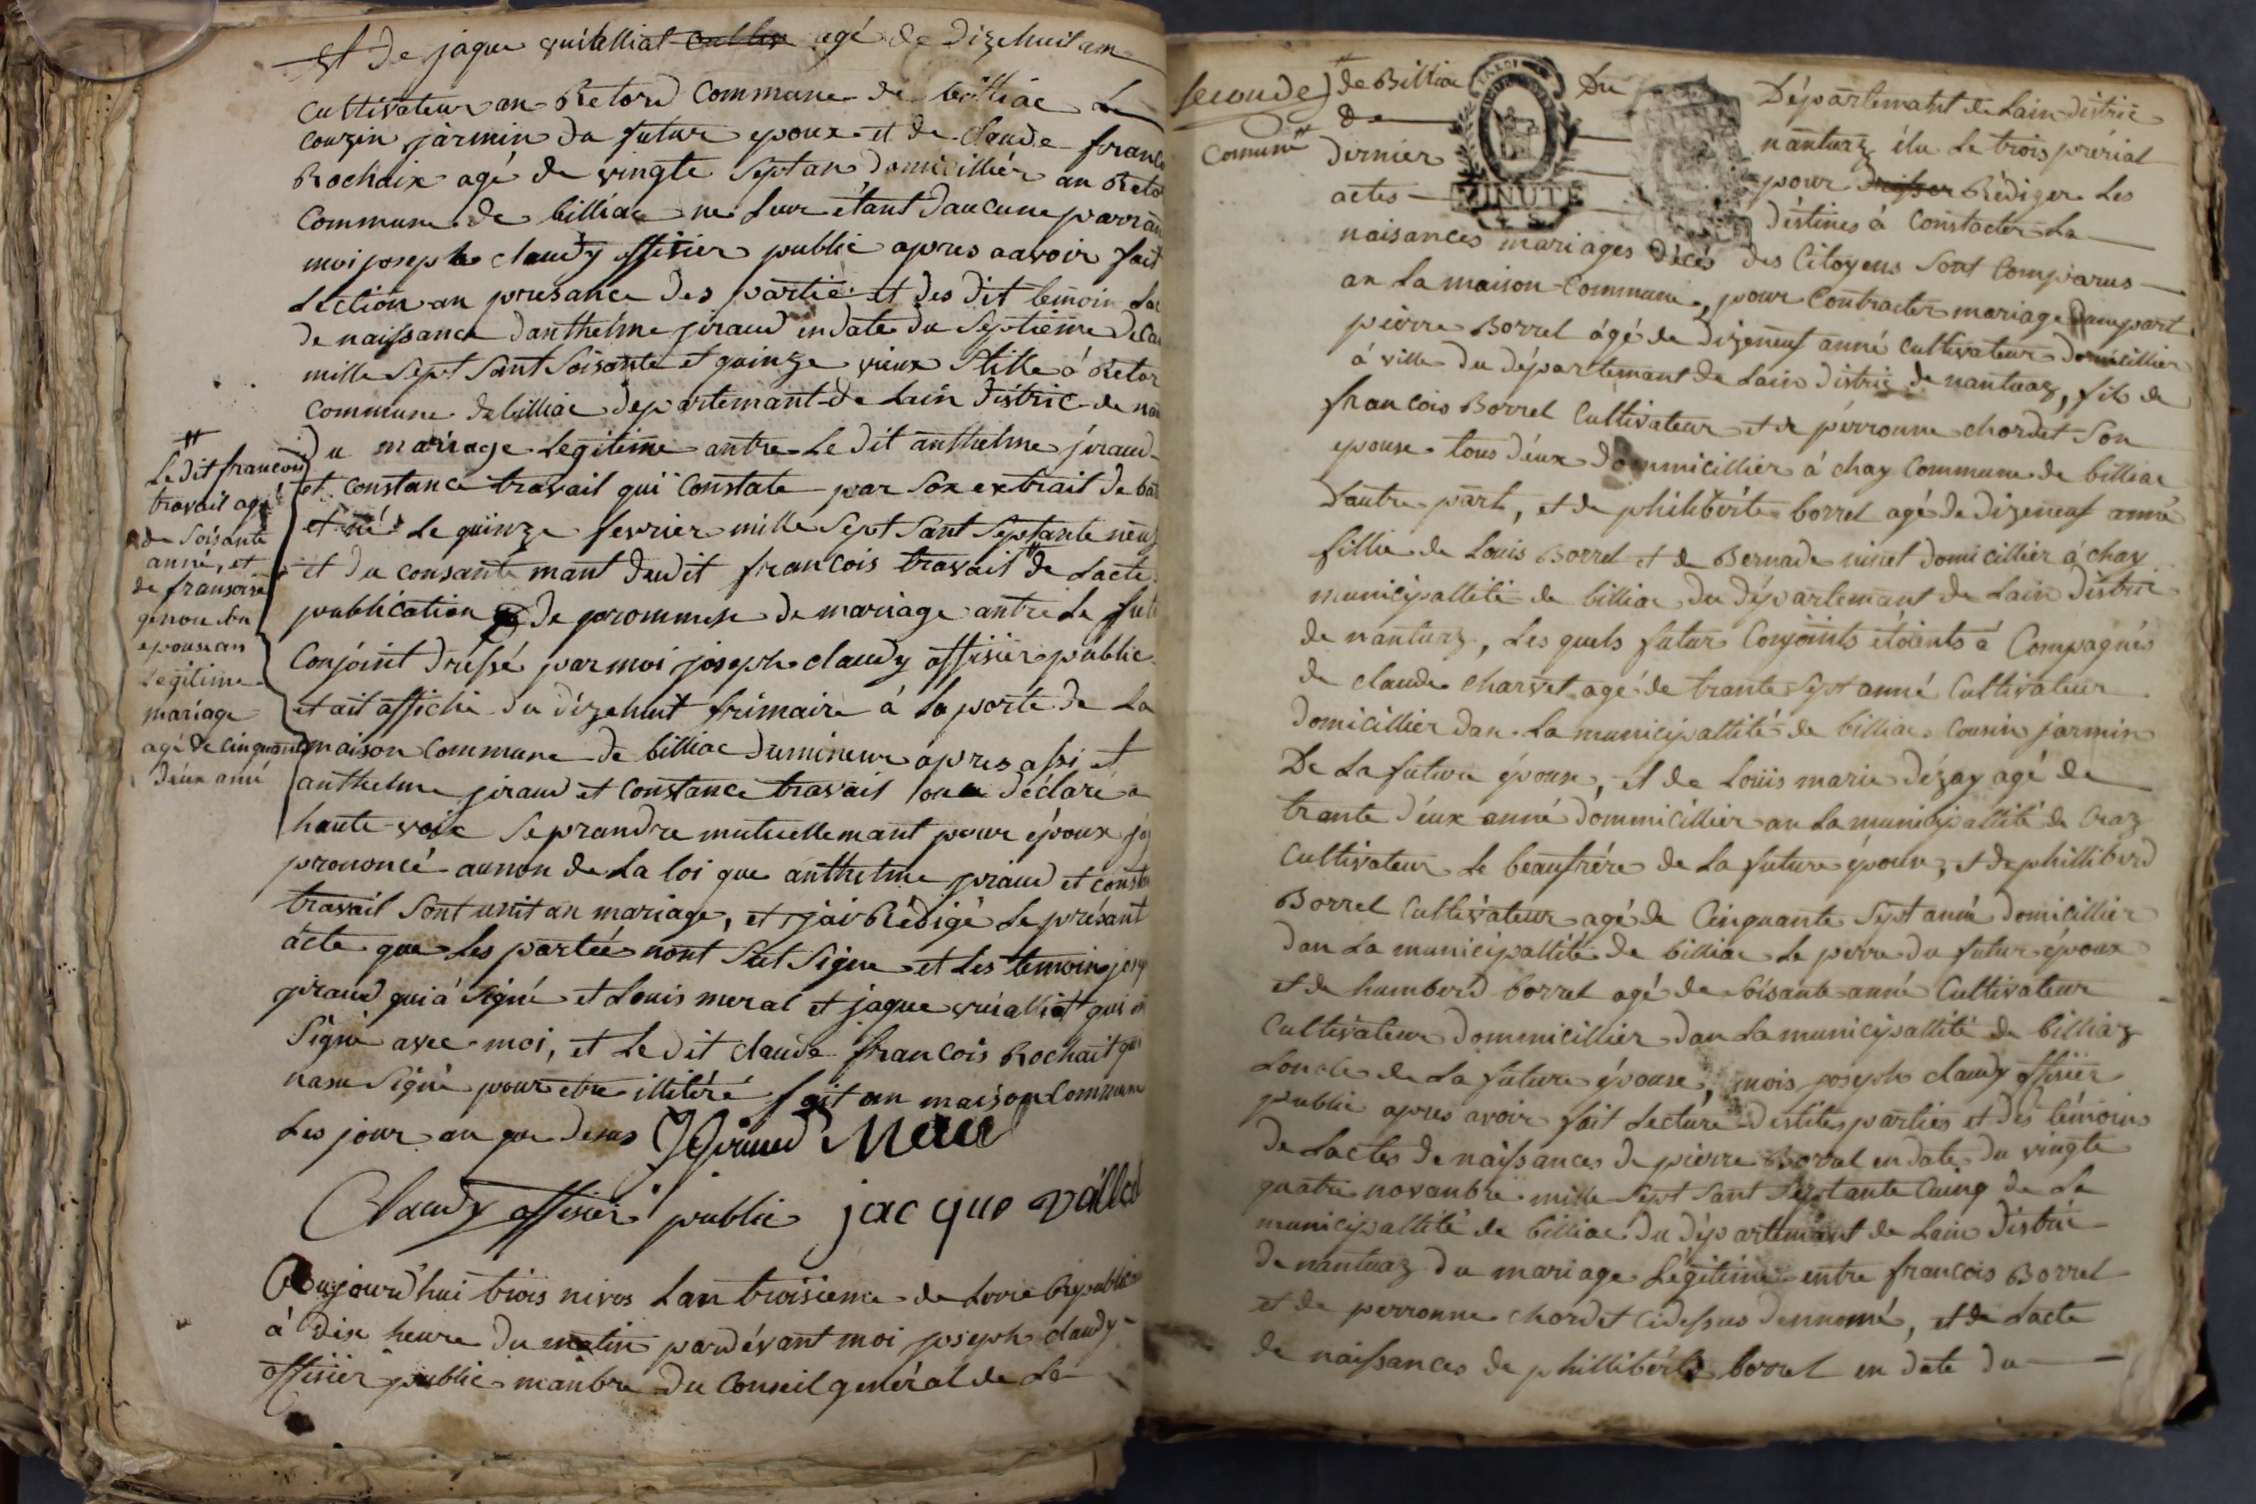 et de jaque vuitelliat agé de dizehuit an
cultivateur an Retord commune de billiac Le
couzin jarmin du futur epoux et de claude franc
Rochaix agé de vingte sept an domicillier an Reto
commune de billiac ne leur étant daucune parran
moi joseph claudy offisier public apres aavoir fait
Lection an presance des partié et des dit temoin Lac
de naissance danthelme jiraud en date du septieme Decan
mille sept sant soisante et quinze vieux stille à Retor
commune de billiac departemant de Lain distric de nan
du mariage Legitime antre Le dit anthelme jiraud
et constance travail qui constate par son extrait de bat
et né Le quinze fevrier mille sept sant septante neuf
et du consantemant dudit francois travail # de Lacte
publication de prommese de mariage antre Le fut
Conjoint dressé par moi joseph claudy offisier public
et ait affiche du dizehuit frimaire à la porte de La
maison commune de billiac du mineur apres assi et
anthelme jiraud et constance travail on déclaré a
haute voix se prandre mutuellemant pour époux j
prononcé aunon de La loi que anthelme jiraud et const
travail sont unit an mariage, et jai Rédigé Le présant
acte que Les partié nont sut signe et Les temoin jos
jiraud qui à signé et Louis meral et jaque vuialliat qui o
signé avec moi, et Le dit claude francois Rochait qui
nasu signé pour etre illitéré fait an maison commune
Les jour an que desus JJiraud Meral
Claudy offisier public jacque
#
Le dit francois
travail agé
de soisante
anné, et
de fransoise
genou son
epouse an
Legitime
mariage
agé de cinquante
deux anné
Aujourd'hui trois nivos Lan troisieme de Lere Republi
à dix heure du matin pardévant moi joseph claudy
offisier public manbre du Conseil genéral de La
seconde)
Comune #
# de Billiac Du Département de Lain distric
de nantuaz élu Le trois prérial
dernier pour Rédiger Les
actes déstines à constacter La
MINUTE
naisances mariages décés des Citoyens sont Comparus
an La maison commune, pour contracter mariage dunepart
pierre Borrel ágé de dizeneuf anné cultivateur domicillier
à ville du département de Lain distric de nantuaz, fils de
francois Borrel cultivateur et de perronne chordet son
epouse tous déux dommicillier à chay commune de billiac
Dautre part, et de philibérte borrel agé de dizeneuf anné
fillie de Louis Borrel et de Bernade ninet domicillier à chay
municipallité de billiac du département de Lain distric
de nantuaz, Les quels futur Conjoints étoients á Compagnés
de claude charvet agé de trante sept anné Cultivateur
domicillier dan La municipallité de billiac cousin jarmin
De La future épouse, et de Louis marie dézay agé de
trante déux anné dommicillier an La municipallité de Craz
Cultivateur Le beaufrére de La future épouse, et de philliberd
Borrel Cultivateur agé de Cinquante sept anné domicillier
dan La municipallité de billiac Le perre du futur époux
et de humberd borrel agé de soisante anné Cultivateur
Cultivateur dommicillier dan La municipallité de billiaz
Loncle de La future épouse, mois joseph claudy offisier
public apres avoir fait Lecture destites parties et des témoin
de Lactes de naissances de pierre Borrel en date du vingte
quatre novanbre mille sept sant septante Cuinq de La
municipallité de billiac du départemant de Lain distric
de nantuaz du mariage Légitime entre francois Borrel
et de perronne chordet cidessus dennomé, et de Lacte
de naissances de phillibérte borrel en date du